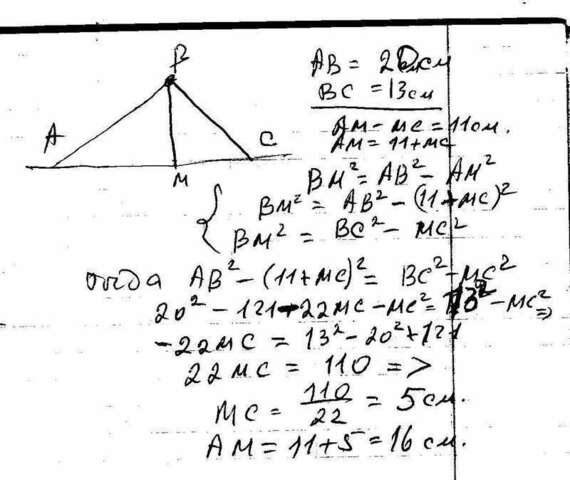 B
A
C
M
AB = 20см
BC = 13см
AM - MC = 11см.
AM = 11 + MC
BM² = AB² - AM²
BM² = AB² - (11 + MC)²
BM² = BC² - MC²
AB² - (11 + MC)² = BC² - MC²
20² - 121 - 22MC - MC² = 13² - MC² =>
-22MC = 13² - 20² + 121
22MC = 110 =>
MC = 110/22 = 5см.
AM = 11 + 5 = 16 см.